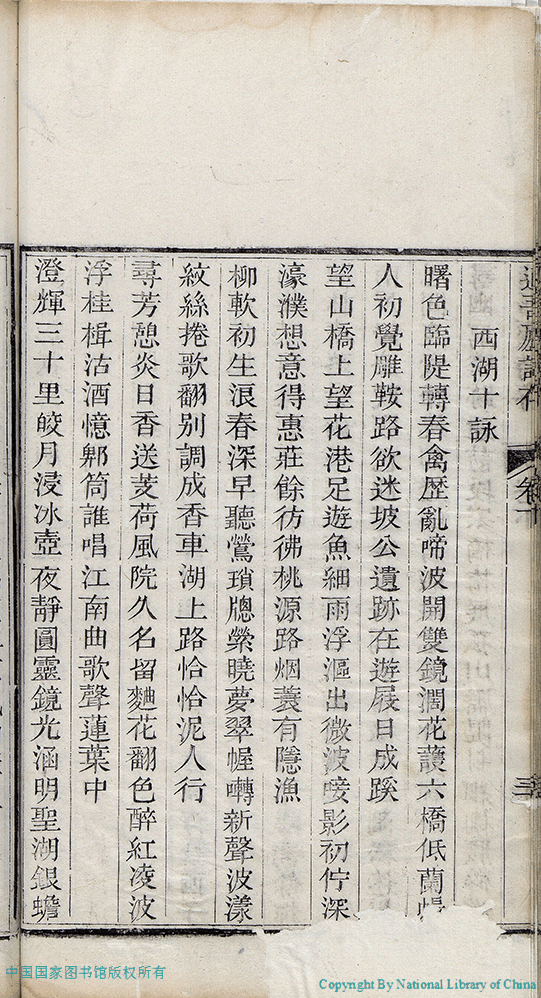 西湖十詠
曙色臨隄轉春禽歷亂啼波開雙鏡濶花護六橋低蘭
人初覺雕鞍路欲迷坡公遺跡在遊屐日成蹊
望山橋上望花港足遊魚細雨浮漚出微波唼影初佇深
濠濮想意得惠莊餘彷彿桃源路烟蓑有隱漁
柳軟初生浪春深早聽鶯瑣牕縈曉夢翠幄囀新聲波漾
紋絲捲歌翻別調成香車湖上路恰恰泥人行
尋芳憩炎日香送芰荷風院久名留麯花翻色醉紅凌波
浮桂楫沽酒憶郫筒誰唱江南曲歌聲蓮葉中
澄輝三十里皎月浸冰壺夜靜圓靈鏡光涵明聖湖銀蟾
中国国家图书馆版权所有
Copyright By National Library of China